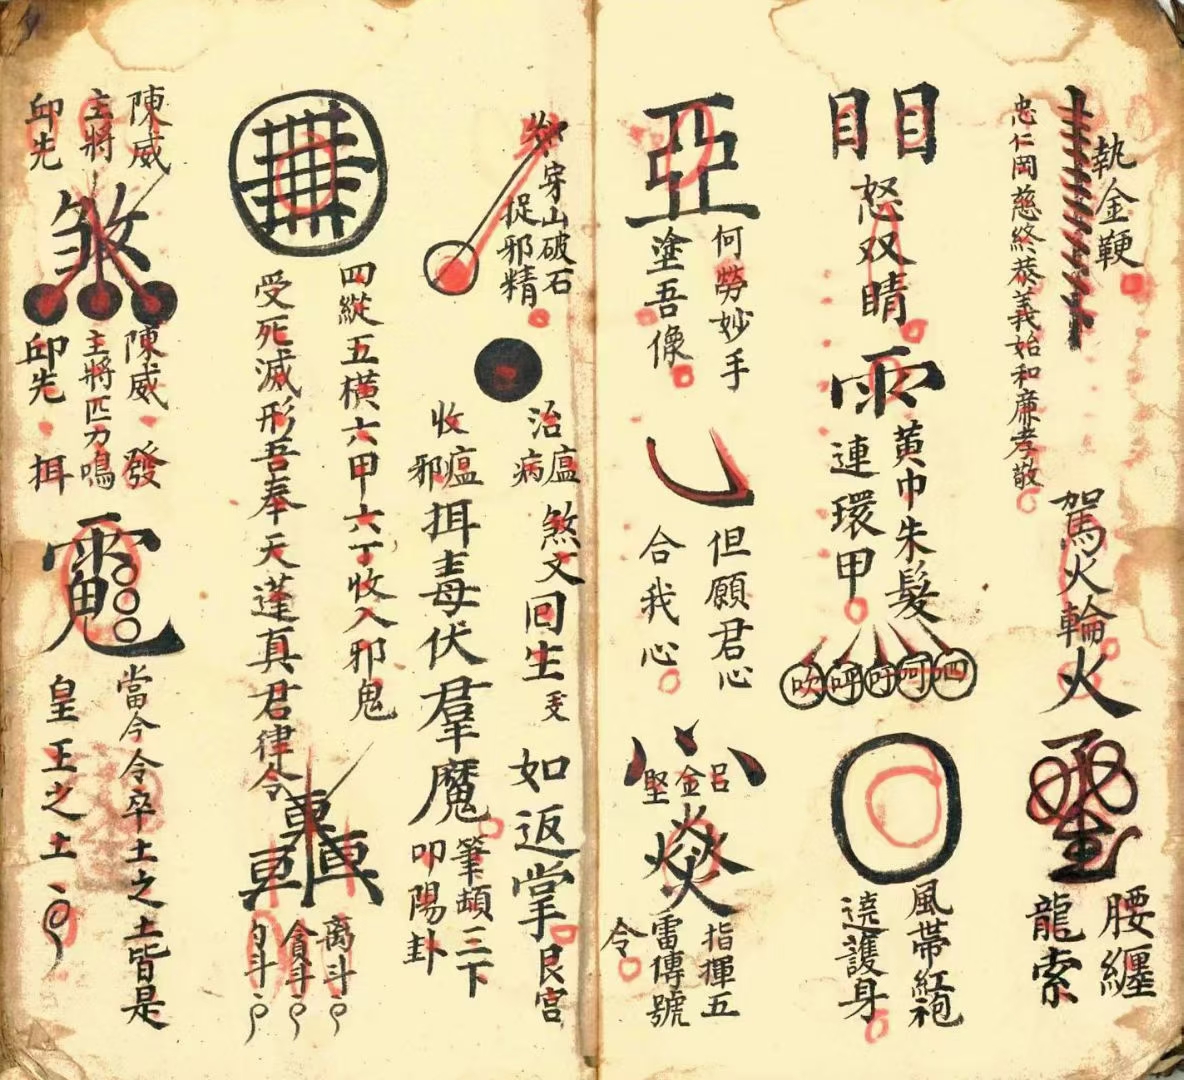 執金鞭
忠仁岡慈終恭義始和廉孝敬
駕火輪
火
腰纏
龍索
怒双睛
黄巾朱髮
連環甲
呬呵呼吹
風帶紅袍
遶護身
亞
何勞妙手
塗吾像
但願君心
合我心
呂金堅
焱
指揮五
雷傳號
令
穿山破石
捉邪精
治瘟病
收瘟邪
煞文囘生
如返掌
艮宮
挕毒伏羣魔
筆頓三下
叩陽卦
四縱五橫六甲六丁收入邪鬼
受死滅形吾奉天蓬真君律令
离斗
貪斗
陳威
主將
邱先
煞
陳威發
主將匹力鳴
邱先挕
當今令卒土之土皆是
皇王之土